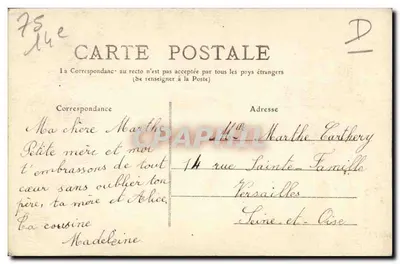 75
14e
D
CARTE POSTALE
La Correspondance au recto n'est pas acceptée par tous les pays étrangers
(Se renseigner à la Poste)
Correspondance
Ma chère Marthe
Petite mère et moi
t'embrassons de tout
cœur sans oublier ton
père, ta mère et Alice
Ta cousine
Madeleine
Adresse
Mlle Marthe
14 rue Sainte-Famille
Versailles
Seine-et-Oise